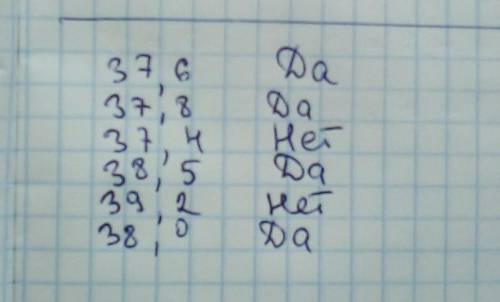 37,6 Да
37,8 Да
37,4 Нет
38,5 Да
39,2 Нет
38,0 Да